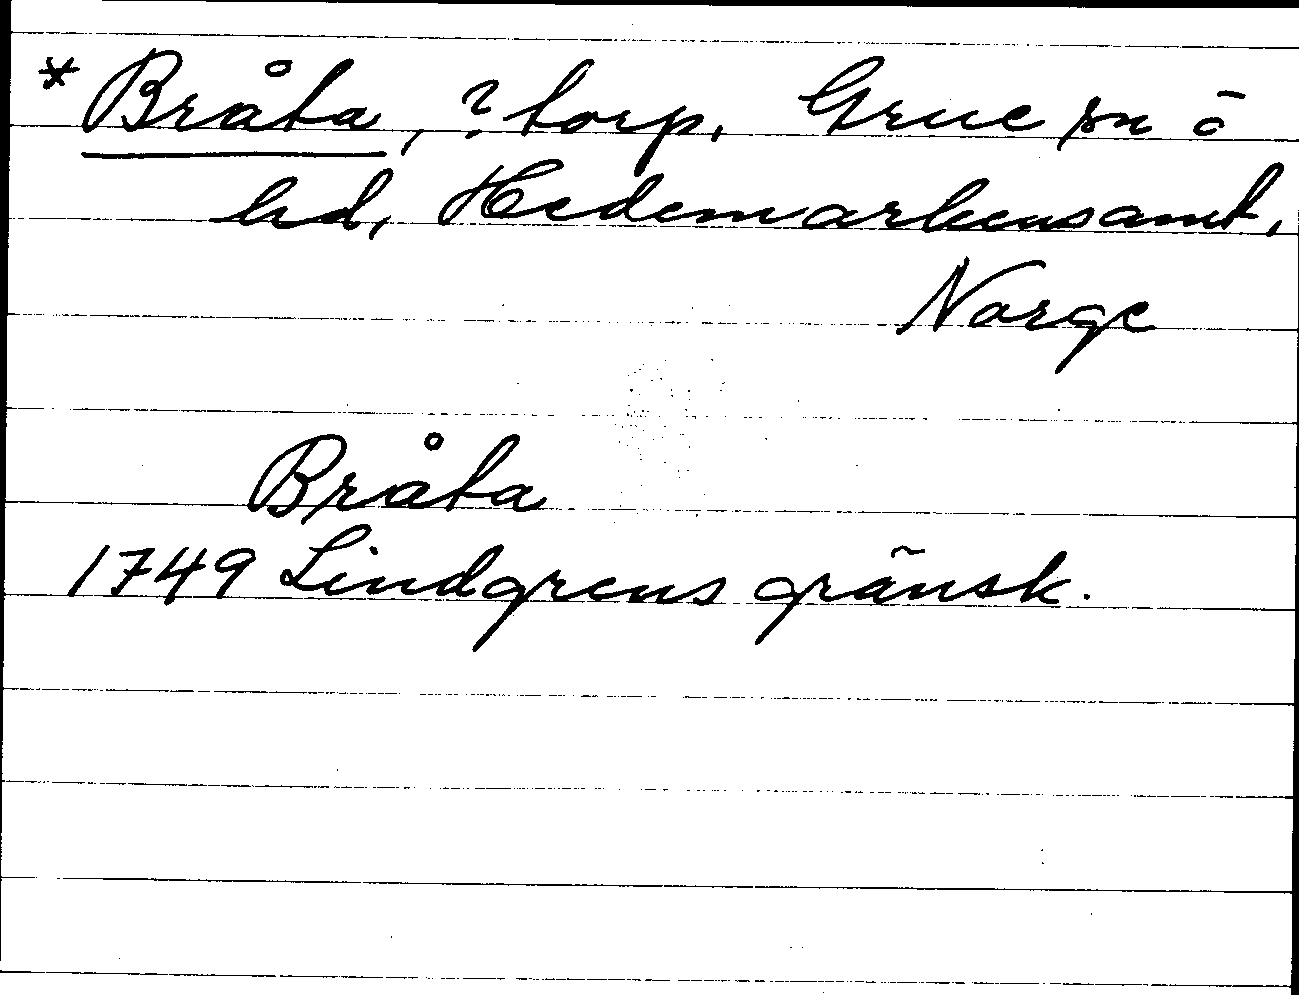 * Bråta, ? torp, Grue sn ō
hd, Hedemarkensamt,
Norge
Bråta
1749 Lindgrens gränsk.